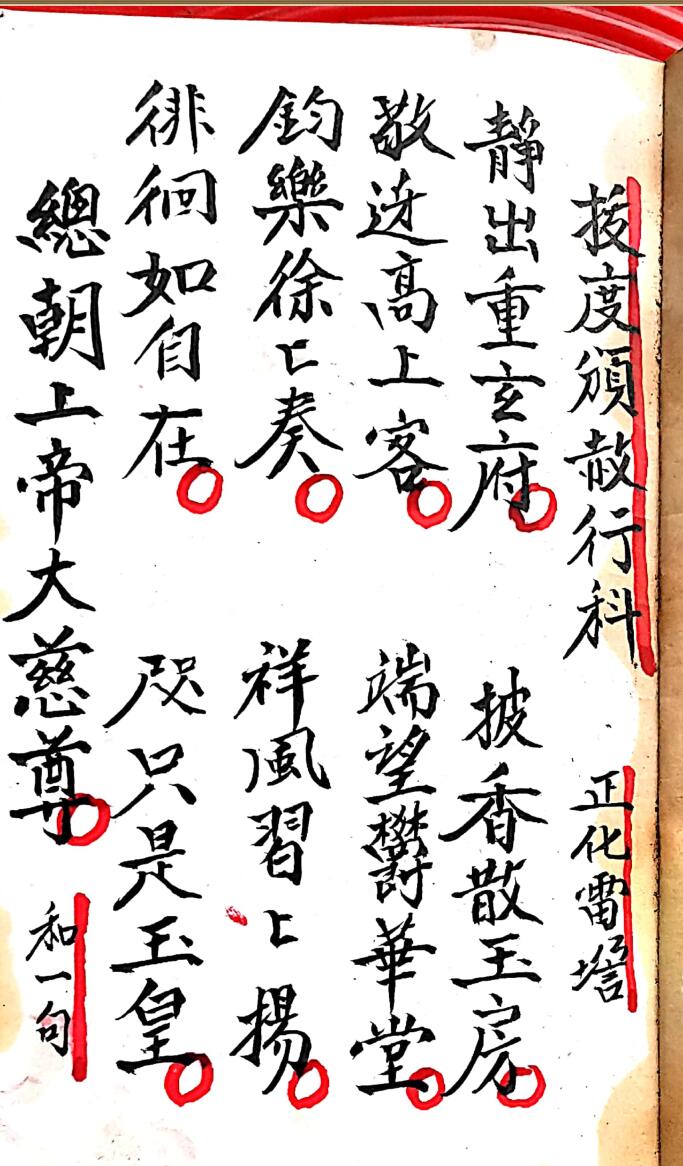 拔度頒赦行科　正化雷壇
靜出重玄府　披香散玉房
敬迓高上客　端望欝華堂
鈞樂徐〻奏　祥風習〻揚
徘徊如自在　咫只是玉皇
總朝上帝大慈尊　和一句